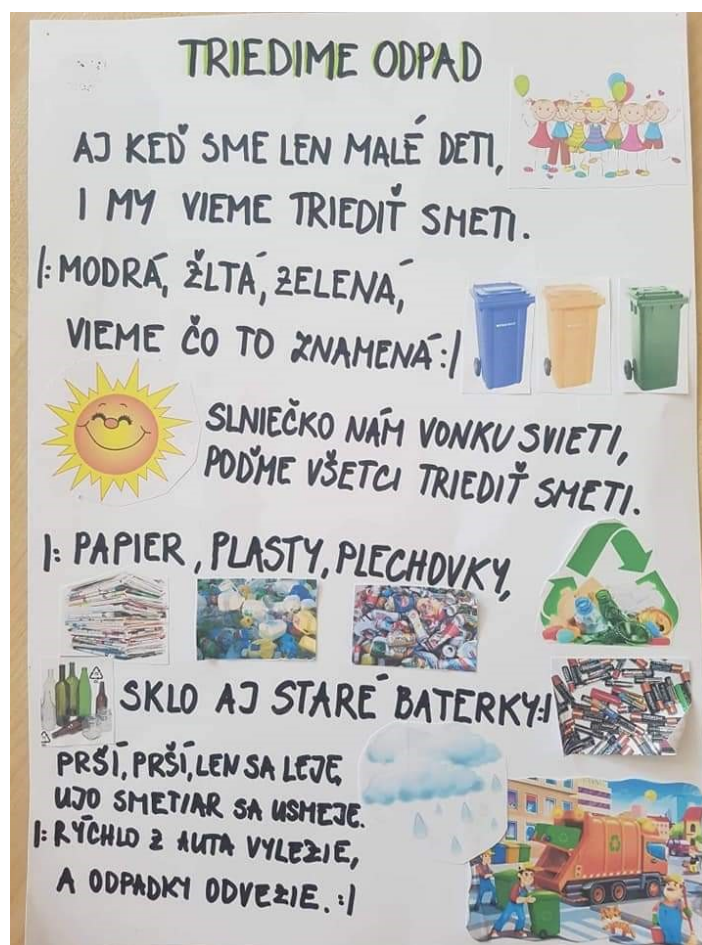 TRIEDIME ODPAD
AJ KEĎ SME LEN MALÉ DETI,
I MY VIEME TRIEDIŤ SMETI.
|: MODRÁ, ŽLTÁ, ZELENÁ,
VIEME ČO TO ZNAMENÁ :|
SLNIEČKO NÁM VONKU SVIETI,
POĎME VŠETCI TRIEDIŤ SMETI.
|: PAPIER, PLASTY, PLECHOVKY,
SKLO AJ STARÉ BATERKY :|
PRŠÍ, PRŠÍ, LEN SA LEJE,
UJO SMETIAR SA USMEJE.
|: RÝCHLO Z AUTA VYLEZIE,
A ODPADKY ODVEZIE. :|